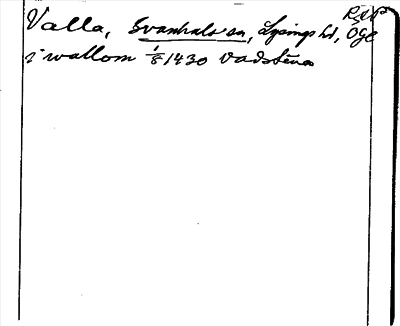 Valla, Svanhals sn, Lysings hd, Ögl
i wallom 1/8 1430 Vadstena